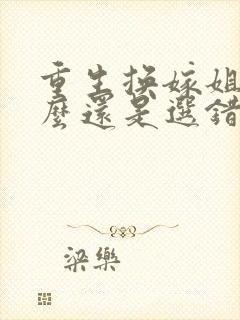 重生換嫁姐
麼還是選錯
梁樂